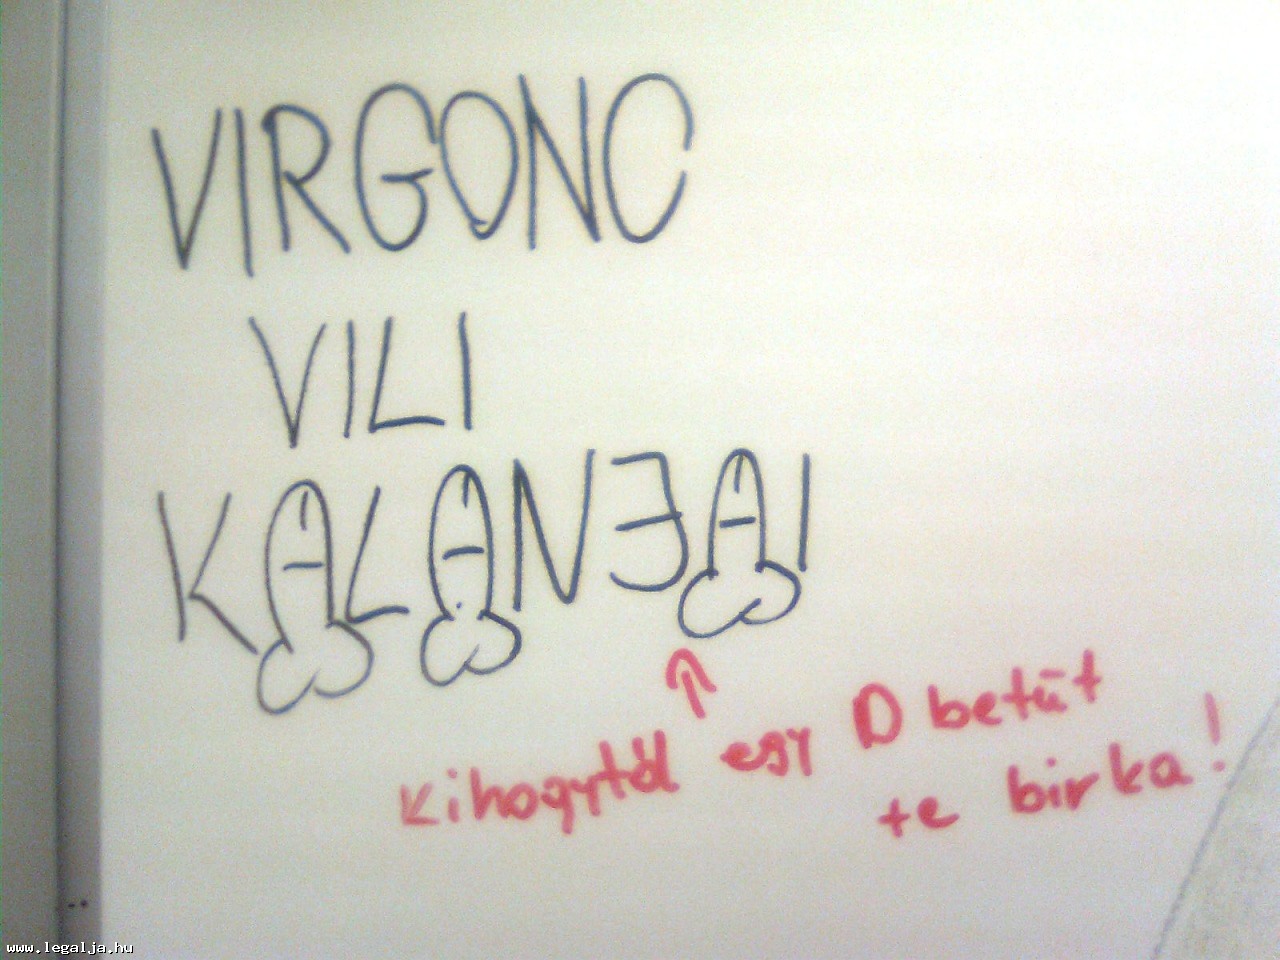 VIRGONC
VILI
KALANJAI
Kihagytál egy D betűt
te birka!
www.legalja.hu